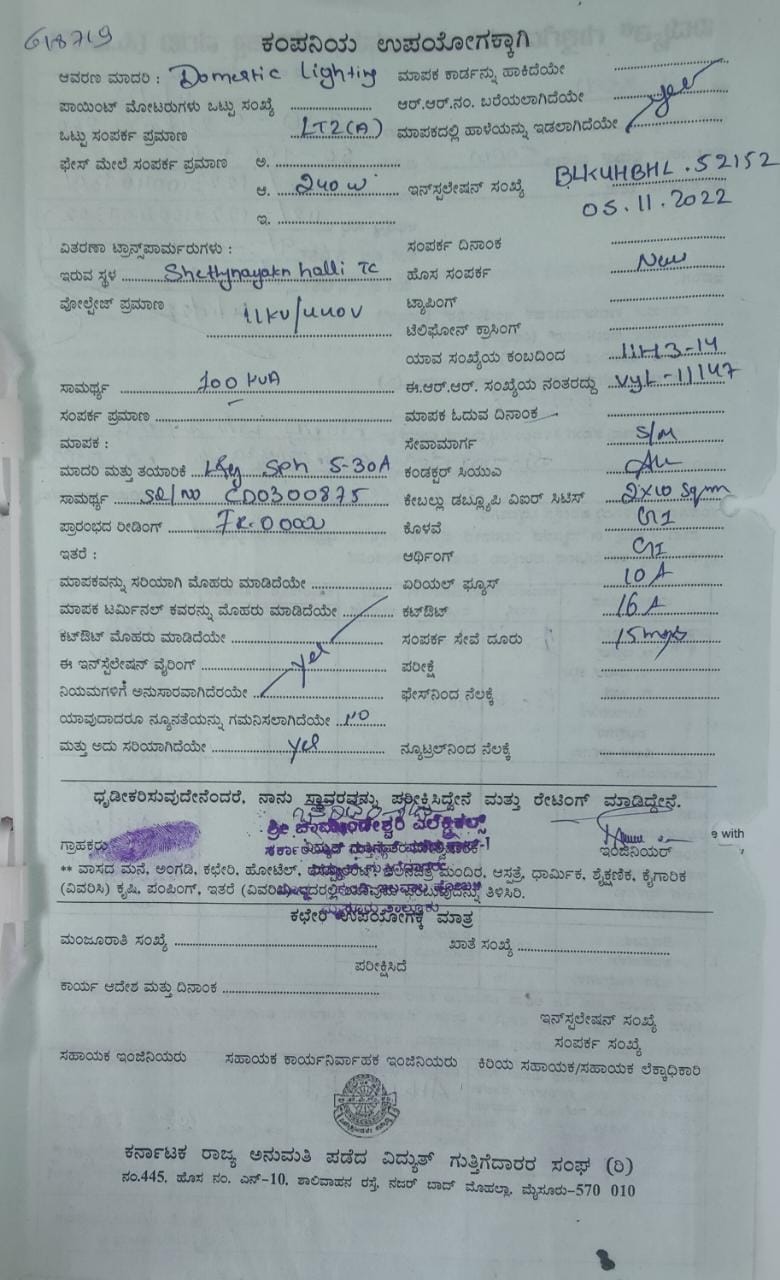 618719
ಕಂಪನಿಯ ಉಪಯೋಗಕ್ಕಾಗಿ
ಆವರಣ ಮಾದರಿ : Domestic Lighting ಮಾಪಕ ಕಾರ್ಡನ್ನು ಹಾಕಿದೆಯೇ
ಪಾಯಿಂಟ್ ಮೋಟರುಗಳು ಒಟ್ಟು ಸಂಖ್ಯೆ ಆರ್.ಆರ್.ನಂ. ಬರೆಯಲಾಗಿದೆಯೇ yes
ಒಟ್ಟು ಸಂಪರ್ಕ ಪ್ರಮಾಣ LT2(A) ಮಾಪಕದಲ್ಲಿ ಹಾಳೆಯನ್ನು ಇಡಲಾಗಿದೆಯೇ
ಫೇಸ್ ಮೇಲೆ ಸಂಪರ್ಕ ಪ್ರಮಾಣ ಅ.
ಆ. 240 w ಇನ್‌ಸ್ಪಲೇಷನ್ ಸಂಖ್ಯೆ BLKUHBHL.52152
05.11.2022
ಇ.
ವಿತರಣಾ ಟ್ರಾನ್ಸ್‌ಪಾರ್ಮರುಗಳು : ಸಂಪರ್ಕ ದಿನಾಂಕ
ಇರುವ ಸ್ಥಳ Shettynayakn halli TC ಹೊಸ ಸಂಪರ್ಕ New
ವೋಲ್ಟೇಜ್ ಪ್ರಮಾಣ 11KV/440V ಟ್ಯಾಪಿಂಗ್
ಟೆಲಿಫೋನ್ ಕ್ರಾಸಿಂಗ್
ಯಾವ ಸಂಖ್ಯೆಯ ಕಂಬದಿಂದ 11H3-14
ಸಾಮರ್ಥ್ಯ 100 KVA ಈ.ಆರ್.ಆರ್. ಸಂಖ್ಯೆಯ ನಂತರದ್ದು VYL-11147
ಸಂಪರ್ಕ ಪ್ರಮಾಣ ಮಾಪಕ ಓದುವ ದಿನಾಂಕ
ಮಾಪಕ : ಸೇವಾಮಾರ್ಗ S/M
ಮಾದರಿ ಮತ್ತು ತಯಾರಿಕೆ L&G Sph 5-30A ಕಂಡಕ್ಟರ್ ಸಿಯುಎ
ಸಾಮರ್ಥ್ಯ Sl/no CD0300875 ಕೇಬಲ್ಲು ಡಬ್ಲ್ಯೂಪಿ ವಿಐರ್ ಸಿಟಿಸ್ 2x10 Sqmm
ಪ್ರಾರಂಭದ ರೀಡಿಂಗ್ ಕೊಳವೆ GI
ಇತರೆ : ಆರ್ಥಿಂಗ್ GI
ಮಾಪಕವನ್ನು ಸರಿಯಾಗಿ ಮೊಹರು ಮಾಡಿದೆಯೇ ಏರಿಯಲ್ ಫ್ಯೂಸ್ 10 A
ಮಾಪಕ ಟರ್ಮಿನಲ್ ಕವರನ್ನು ಮೊಹರು ಮಾಡಿದೆಯೇ ಕಟ್‌ಔಟ್ 16 A
ಕಟ್‌ಔಟ್ ಮೊಹರು ಮಾಡಿದೆಯೇ ಸಂಪರ್ಕ ಸೇವೆ ದೂರು 15
ಈ ಇನ್‌ಸ್ಪೆಲೇಷನ್ ವೈರಿಂಗ್ yes ಪರೀಕ್ಷೆ
ನಿಯಮಗಳಿಗೆ ಅನುಸಾರವಾಗಿದೆರಯೇ ಫೇಸ್‌ನಿಂದ ನೆಲಕ್ಕೆ
ಯಾವುದಾದರೂ ನ್ಯೂನತೆಯನ್ನು ಗಮನಿಸಲಾಗಿದೆಯೇ NO
ಮತ್ತು ಅದು ಸರಿಯಾಗಿದೆಯೇ yes ನ್ಯೂಟ್ರಲ್‌ನಿಂದ ನೆಲಕ್ಕೆ
ಧೃಡೀಕರಿಸುವುದೇನೆಂದರೆ, ನಾನು ಸ್ಥಾವರವನ್ನು ಪರೀಕ್ಷಿಸಿದ್ದೇನೆ ಮತ್ತು ರೇಟಿಂಗ್ ಮಾಡಿದ್ದೇನೆ.
ಶ್ರೀ ಚಾಮುಂಡೇಶ್ವರಿ ಎಲೆಕ್ಟ್ರಿಕಲ್ಸ್
e with
ಗ್ರಾಹಕರು ಇಂಜಿನಿಯರ್
** ವಾಸದ ಮನೆ, ಅಂಗಡಿ, ಕಛೇರಿ, ಹೋಟೆಲ್, ಮಂದಿರ, ಆಸ್ಪತ್ರೆ, ಧಾರ್ಮಿಕ, ಶೈಕ್ಷಣಿಕ, ಕೈಗಾರಿಕ
(ವಿವರಿಸಿ) ಕೃಷಿ, ಪಂಪಿಂಗ್, ಇತರೆ ತಿಳಿಸಿರಿ.
ಕಛೇರಿ ಉಪಯೋಗಕ್ಕೆ ಮಾತ್ರ
ಮಂಜೂರಾತಿ ಸಂಖ್ಯೆ ಖಾತೆ ಸಂಖ್ಯೆ
ಪರೀಕ್ಷಿಸಿದೆ
ಕಾರ್ಯ ಆದೇಶ ಮತ್ತು ದಿನಾಂಕ
ಇನ್‌ಸ್ಪಲೇಷನ್ ಸಂಖ್ಯೆ
ಸಂಪರ್ಕ ಸಂಖ್ಯೆ
ಸಹಾಯಕ ಇಂಜಿನಿಯರು ಸಹಾಯಕ ಕಾರ್ಯನಿರ್ವಾಹಕ ಇಂಜಿನಿಯರು ಕಿರಿಯ ಸಹಾಯಕ/ಸಹಾಯಕ ಲೆಕ್ಕಾಧಿಕಾರಿ
ಕರ್ನಾಟಕ ರಾಜ್ಯ ಅನುಮತಿ ಪಡೆದ ವಿದ್ಯುತ್ ಗುತ್ತಿಗೆದಾರರ ಸಂಘ (ರಿ)
ನಂ.445, ಹೊಸ ನಂ. ಎನ್-10, ಶಾಲಿವಾಹನ ರಸ್ತೆ, ನಜರ್ ಬಾದ್ ಮೊಹಲ್ಲಾ, ಮೈಸೂರು-570 010